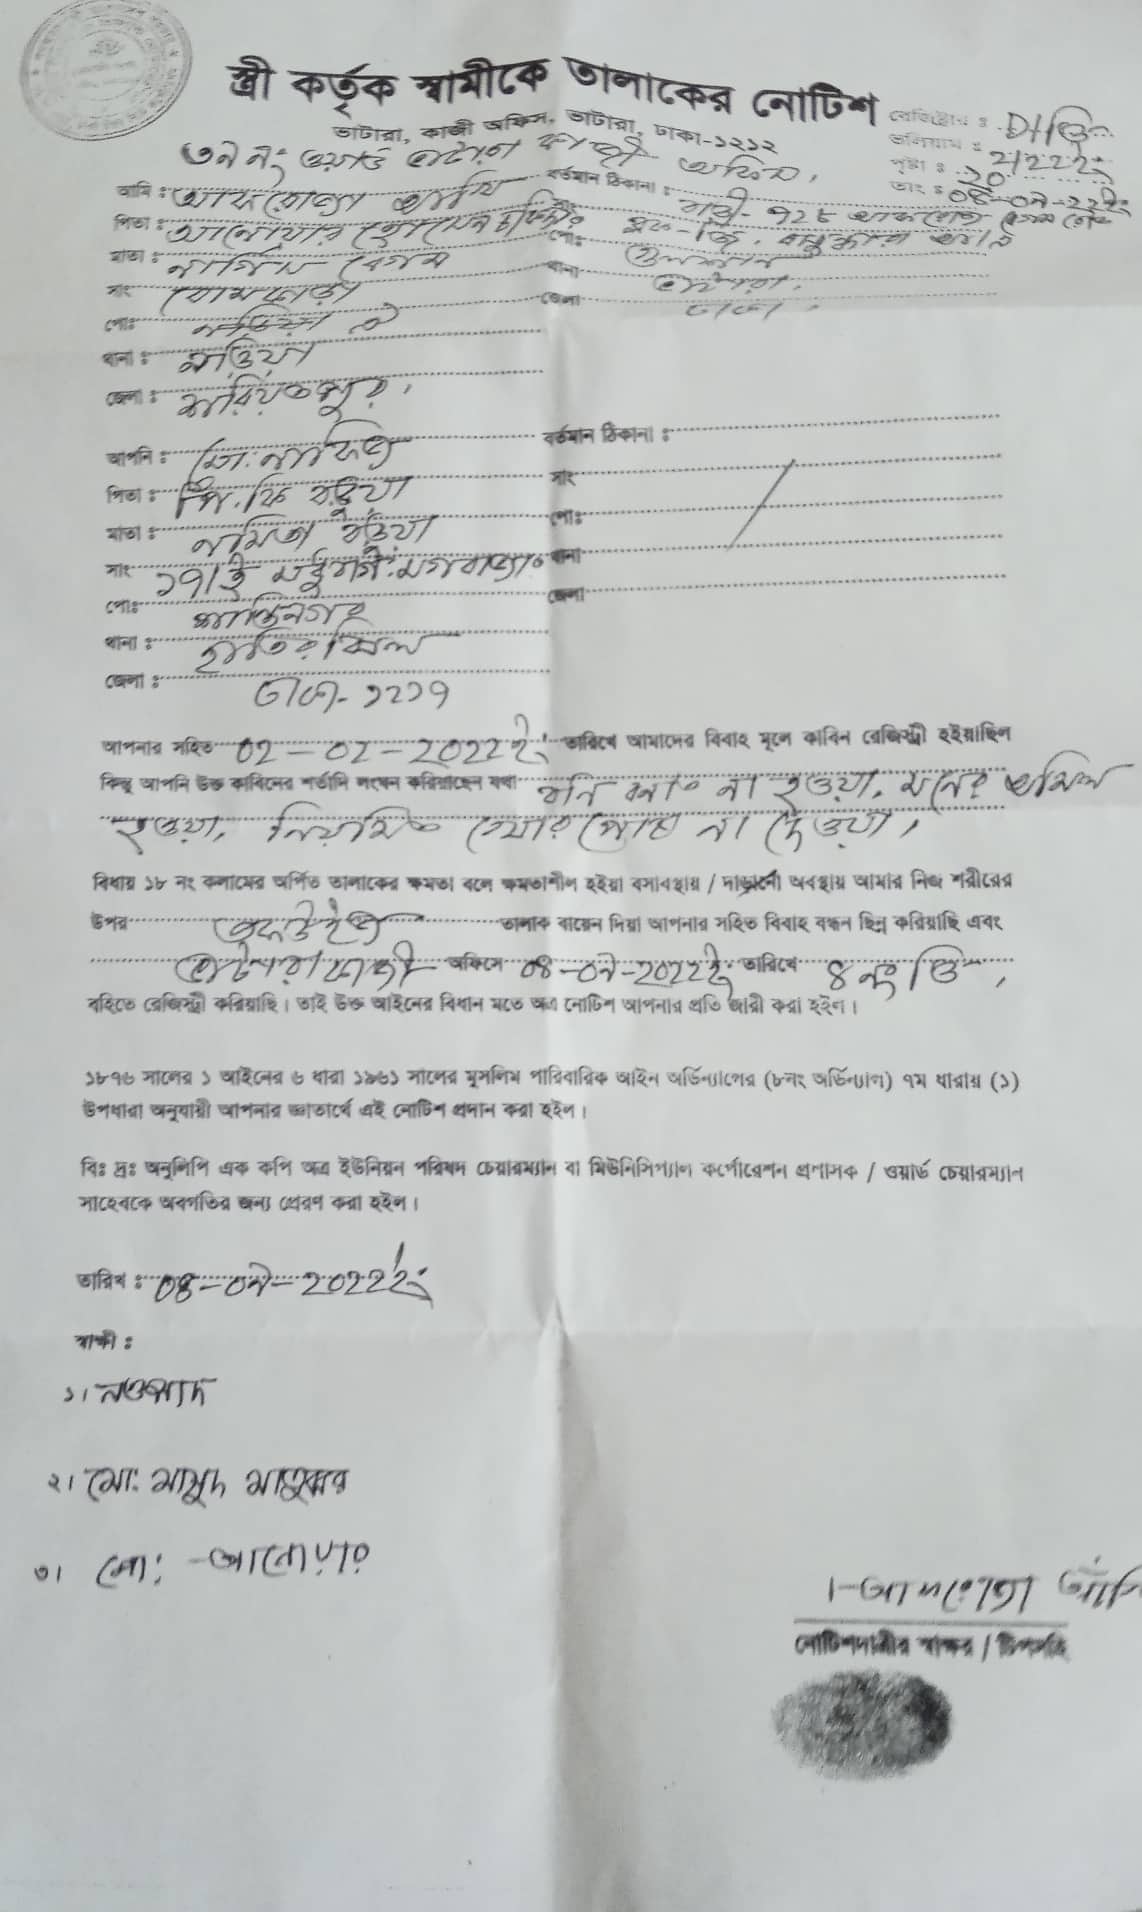 স্ত্রী কর্তৃক স্বামীকে তালাকের নোটিশ
ভাটারা, কাজী অফিস, ভাটারা, ঢাকা-১২১২
৩৯ নং ওয়ার্ড ভাটারা কাজী অফিস,
ভলিয়াম : ২/২২ইং
পৃষ্টা : ২০
তাং : ০৪-০৯-২২ইং
আমি : আফরোজা আঁখি
বর্তমান ঠিকানা : বাড়ী- ৭২৮
পিতা : আনোয়ার হোসেন
ব্লক-জি,
মাতা : নার্গিস বেগম
পোঃ গুলশান
সাং
থানা ভাটারা,
পোঃ নড়িয়া
জেলা ঢাকা,
থানা : নড়িয়া
জেলা : শরিয়তপুর,
আপনি : মো:
বর্তমান ঠিকানা :
পিতা : পি. কে বড়ুয়া
সাং
মাতা : নমিতা বড়ুয়া
পোঃ
সাং ১৭/ই মধুবাগ, মগবাজার
থানা
পোঃ শান্তিনগর
জেলা
থানা : হাতিরঝিল
জেলা : ঢাকা- ১২১৭
আপনার সহিত ০২-০২-২০২২ইং তারিখে আমাদের বিবাহ মূলে কাবিন রেজিস্ট্রী হইয়াছিল
কিন্তু আপনি উক্ত কাবিনের শর্তাদি লংঘন করিয়াছেন যথা বনি বনাত না হওয়া, মনের অমিল
হওয়া, নিয়মিত খোর পোষ না দেওয়া,
বিধায় ১৮ নং কলামের অর্পিত তালাকের ক্ষমতা বলে ক্ষমতাশীল হইয়া বসাবস্থায় / দাড়ানো অবস্থায় আমার নিজ শরীরের
উপর তালাক বায়েন দিয়া আপনার সহিত বিবাহ বন্ধন ছিন্ন করিয়াছি এবং
ভাটারা কাজী অফিসে ০৪-০৯-২০২২ইং তারিখে ৪ নং ডি,
বহিতে রেজিস্ট্রী করিয়াছি। তাই উক্ত আইনের বিধান মতে অত্র নোটিশ আপনার প্রতি জারী করা হইল।
১৮৭৬ সালের ১ আইনের ৬ ধারা ১৯৬১ সালের মুসলিম পারিবারিক আইন অর্ডিন্যান্সের (৮নং অর্ডিন্যান্স) ৭ম ধারায় (১)
উপধারা অনুযায়ী আপনার জ্ঞাতার্থে এই নোটিশ প্রদান করা হইল।
বিঃ দ্রঃ অনুলিপি এক কপি অত্র ইউনিয়ন পরিষদ চেয়ারম্যান বা মিউনিসিপ্যাল কর্পোরেশন প্রশাসক / ওয়ার্ড চেয়ারম্যান
সাহেবকে অবগতির জন্য প্রেরণ করা হইল।
তারিখ : ০৪-০৯-২০২২ইং
স্বাক্ষী :
১। নওশাদ
২। মো: মাসুদ মাতুব্বর
৩। মো: আনোয়ার
আফরোজা আঁখি
নোটিশদাত্রীর স্বাক্ষর / টিপসহি